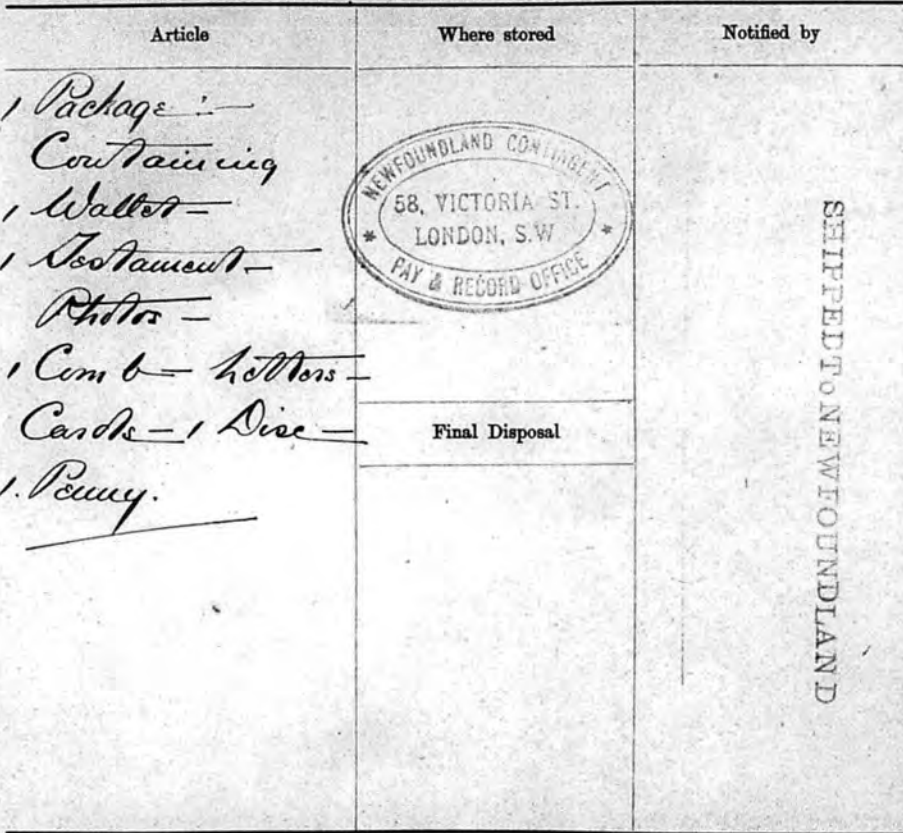 Article
Where stored
Notified by
1 Package :—
Containing
1 Wallet —
1 Testament —
Photos —
1 Comb — Letters —
Cards — 1 Disc —
1. Penny.
NEWFOUNDLAND CONTINGENT
58, VICTORIA ST.
LONDON, S.W
* PAY & RECORD OFFICE *
Final Disposal
SHIPPED To NEWFOUNDLAND